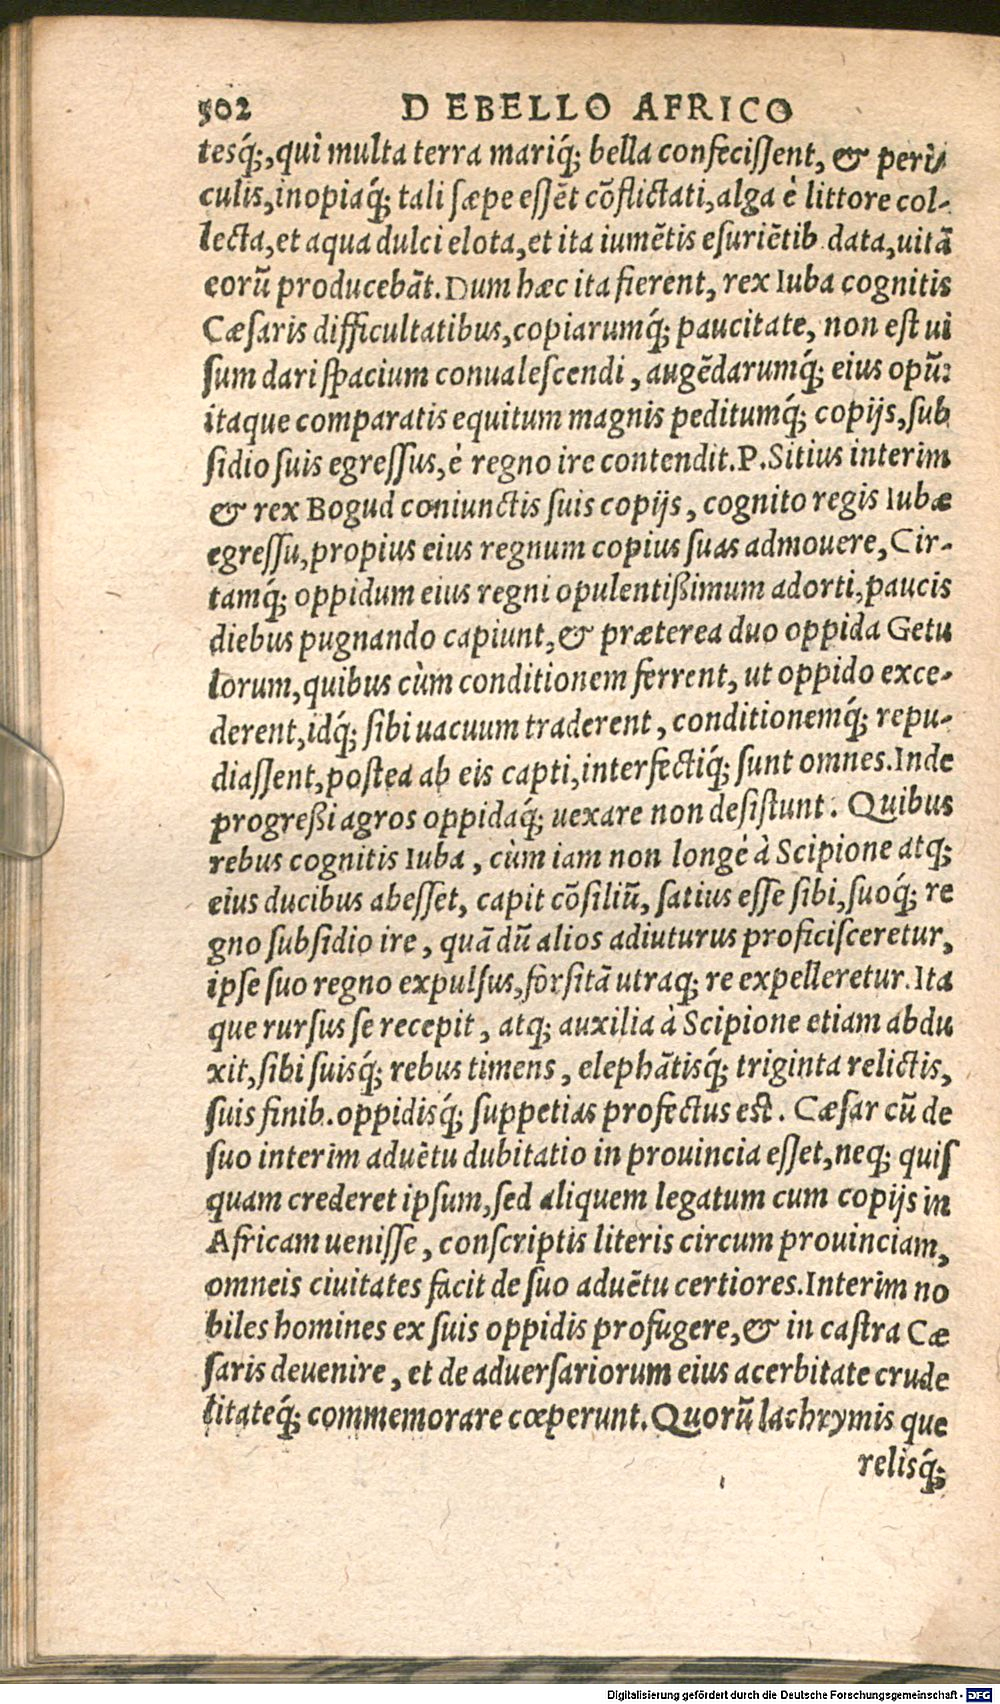 502 D EBELLO AFRICO
tesq́;, qui multa terra mariq́; bella confecissent, & peri
culis, inopiaq́; tali sæpe essēt cōflictati, alga è littore col-
lecta, et aqua dulci elota, et ita iumētis esuriētib. data, uitā
eorū producebāt. Dum hæc ita fierent, rex Iuba cognitis
Cæsaris difficultatibus, copiarumq́; paucitate, non est ui
sum dari spacium conualescendi, augēdarumq́; eius opū:
itaque comparatis equitum magnis peditumq́; copijs, sub
sidio suis egressus, è regno ire contendit. P. Sitius interim
& rex Bogud coniunctis suis copijs, cognito regis Iubæ
egressu, propius eius regnum copius suas admouere, Cir-
tamq́; oppidum eius regni opulentißimum adorti, paucis
diebus pugnando capiunt, & præterea duo oppida Getu
lorum, quibus cùm conditionem ferrent, ut oppido exce-
derent, idq́; sibi uacuum traderent, conditionemq́; repu-
diassent, postea ab eis capti, interfectiq́; sunt omnes. Inde
progreßi agros oppidaq́; uexare non desistunt. Quibus
rebus cognitis Iuba, cùm iam non longè à Scipione atq;
eius ducibus abesset, capit cōsiliū, satius esse sibi, suoq́; re
gno subsidio ire, quā dū alios adiuturus proficisceretur,
ipse suo regno expulsus, forsitā utraq; re expelleretur. Ita
que rursus se recepit, atq; auxilia à Scipione etiam abdu
xit, sibi suisq́; rebus timens, elephātisq́; triginta relictis,
suis finib. oppidisq́; suppetias profectus est. Cæsar cū de
suo interim aduētu dubitatio in prouincia esset, neq; quis
quam crederet ipsum, sed aliquem legatum cum copijs in
Africam uenisse, conscriptis literis circum prouinciam,
omneis ciuitates facit de suo aduētu certiores. Interim no
biles homines ex suis oppidis profugere, & in castra Cæ
saris devenire, et de adversariorum eius acerbitate crude
litateq́; commemorare cœperunt. Quorū lachrymis que
relisq́;
Digitalisierung gefördert durch die Deutsche Forschungsgemeinschaft - DFG